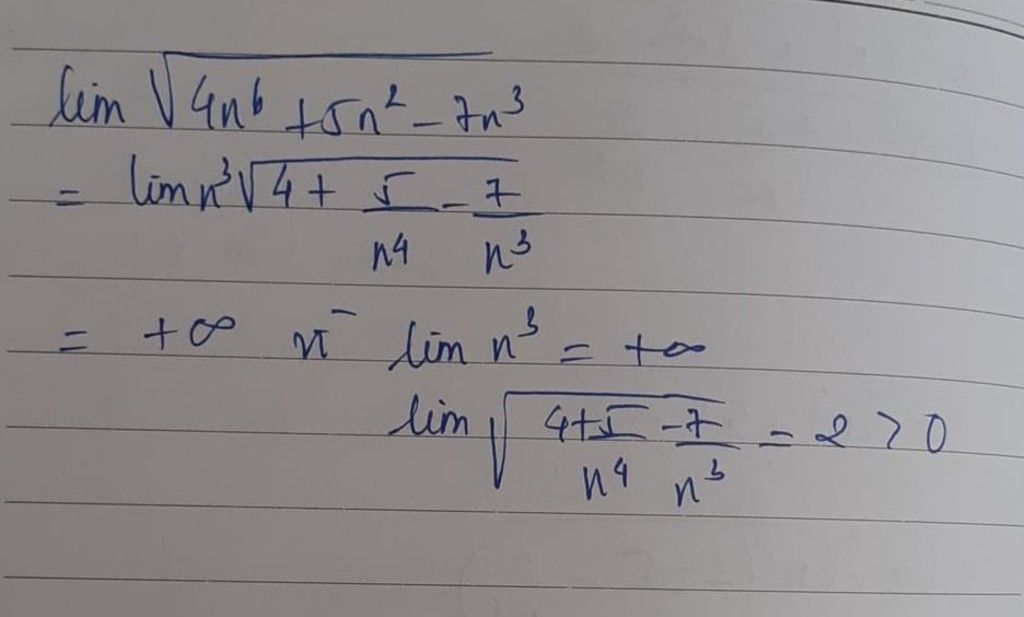 lim √(4n⁶ + 5n² - 7n³
= lim n³√(4 + 5/n⁴ - 7/n³)
= +∞ vì lim n³ = +∞
lim √(4+5/n⁴ - 7/n³) = 2 > 0